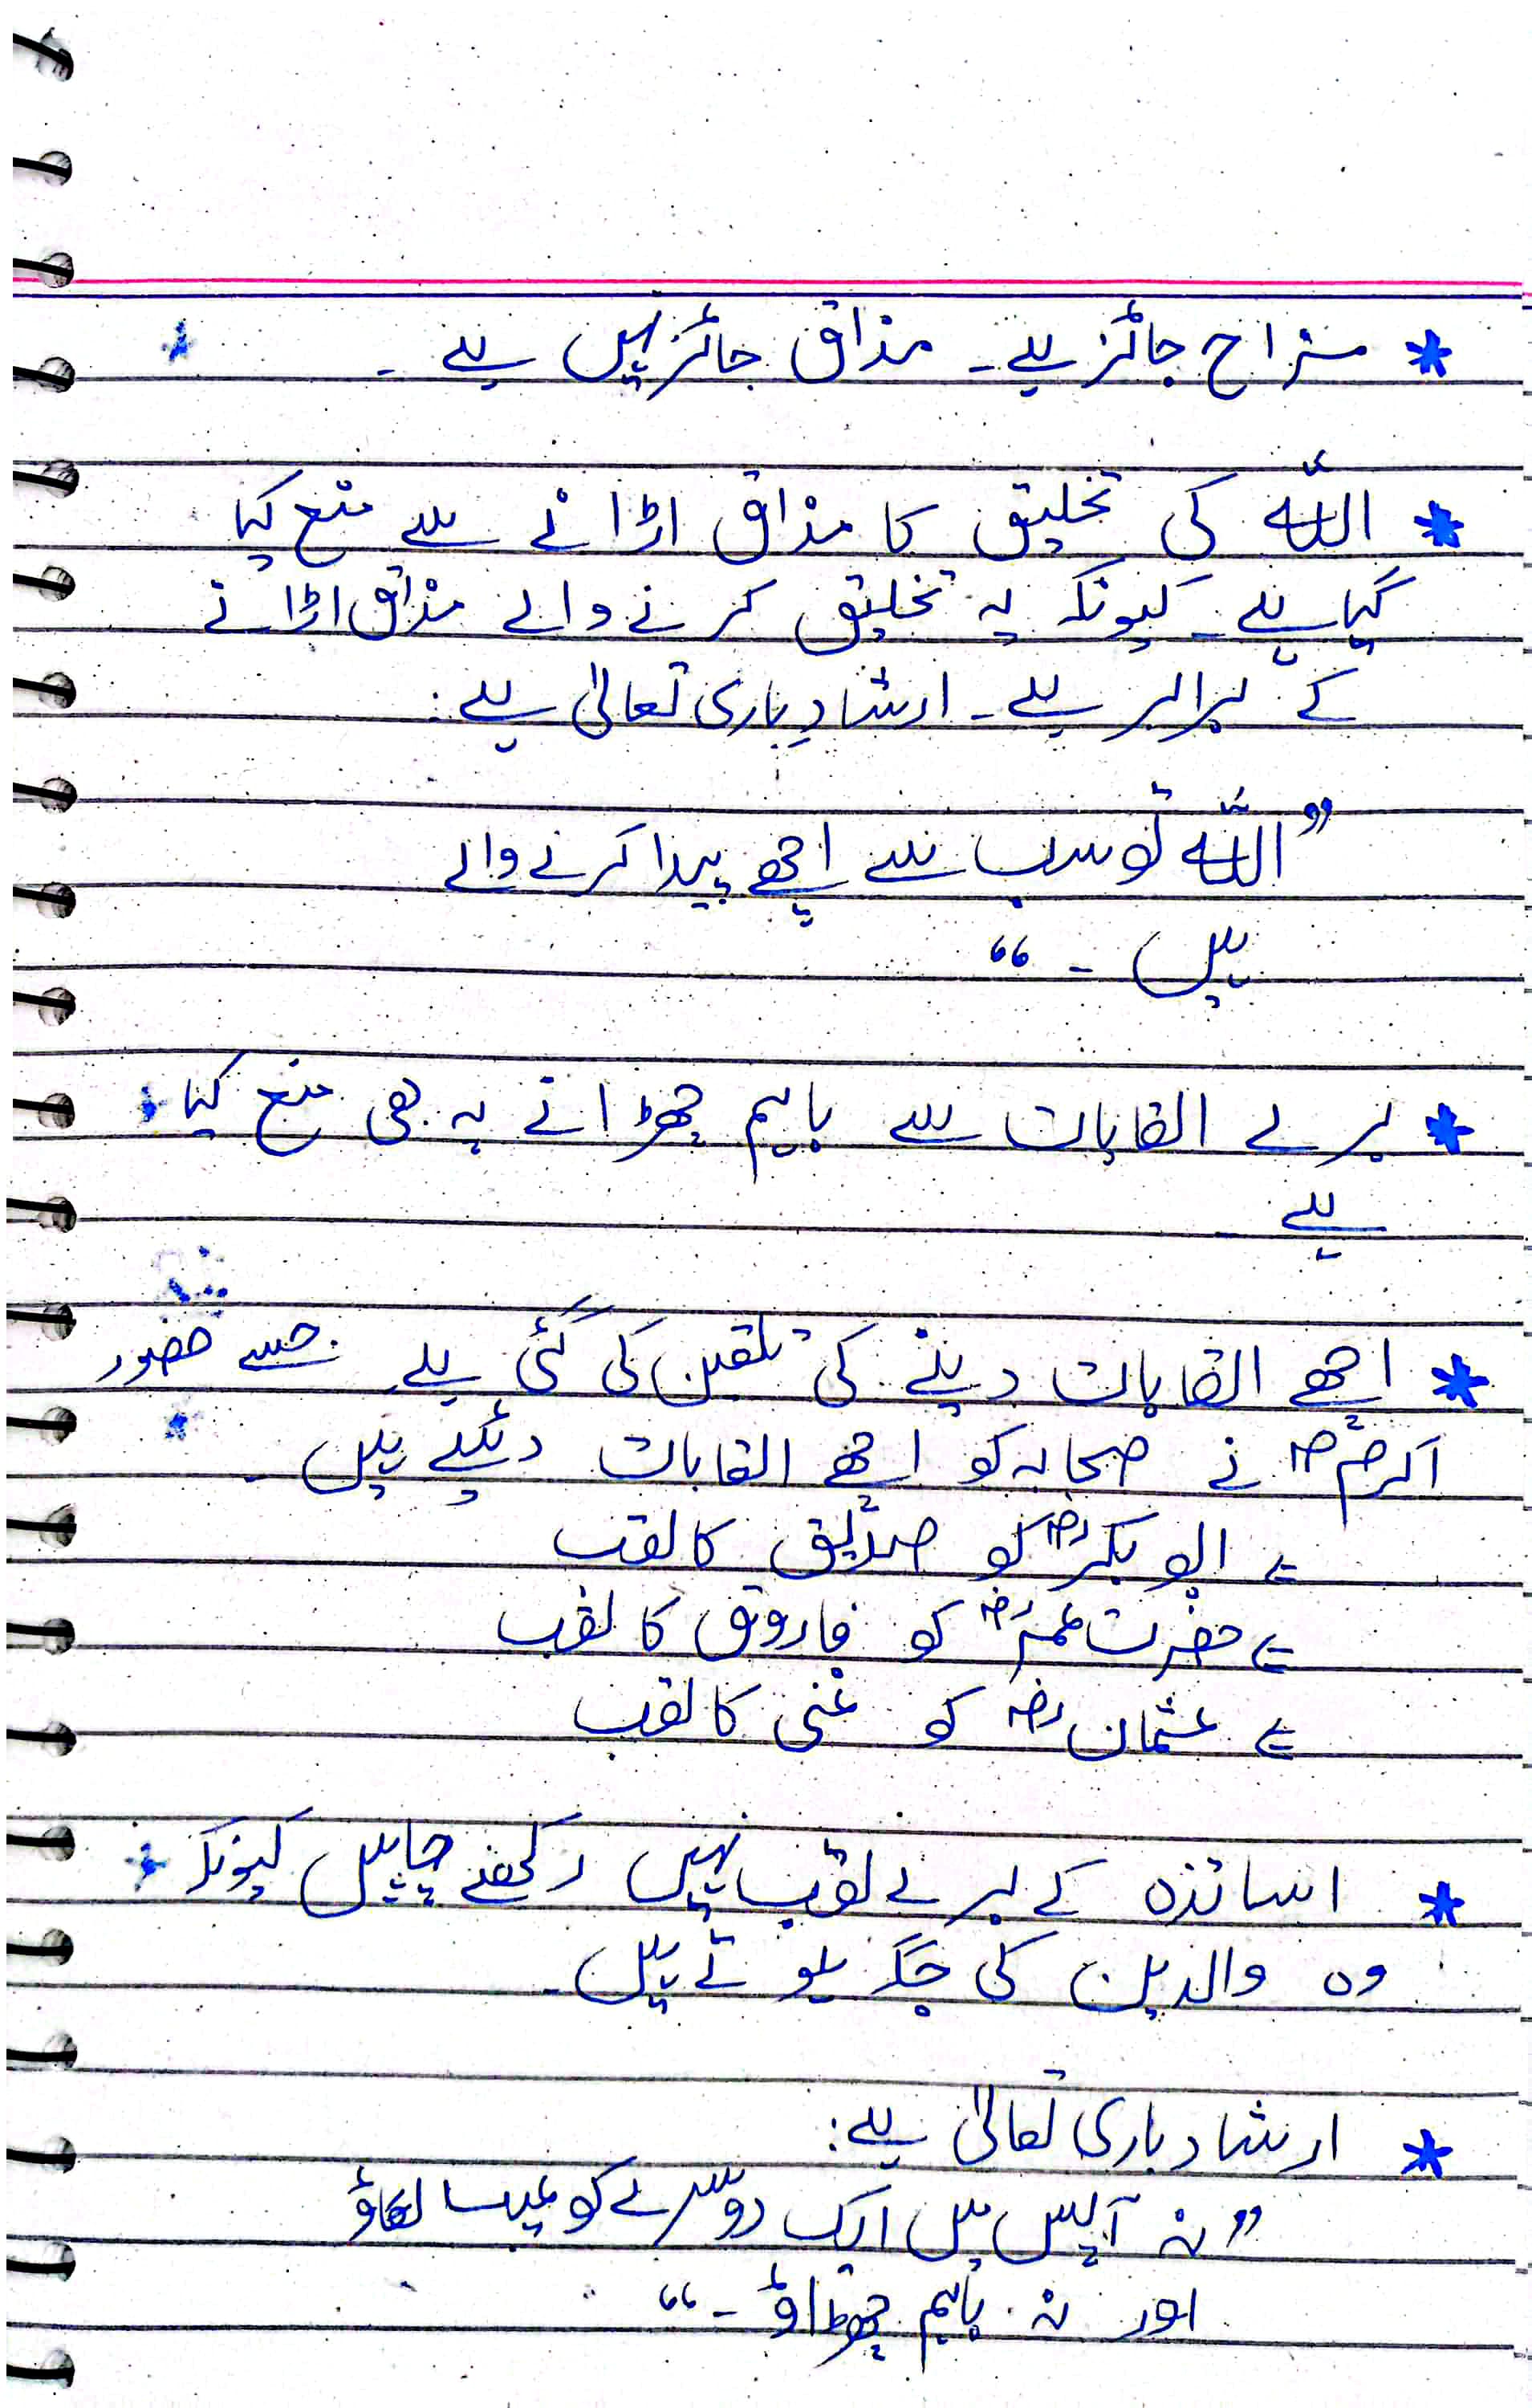 * مزاح جائز ہے۔ مذاق جائز نہیں ہے۔
* اللّٰہ کی تخلیق کا مذاق اڑانے سے منع کیا
گیا ہے۔ کیونکہ یہ تخلیق کرنے والے مذاق اڑانے
کے برابر ہے۔ ارشادِ باری تعالیٰ ہے:
”اللّٰہ تو سب سے اچھے پیدا کرنے والے
ہیں۔“
* برے القابات سے باہم چھڑانے پہ بھی منع کیا
ہے
* اچھے القابات دینے کی تلقین کی گئی ہے۔ جسے حضور
اکرمؐ نے صحابہ کو اچھے القابات دئیے ہیں۔
⇐ ابو بکرؓ کو صدّیق کا لقب
⇐ حضرت عمرؓ کو فاروق کا لقب
⇐ عثمانؓ کو غنی کا لقب
* اساتذہ کے برے لقب نہیں رکھنے چاہیں کیونکہ
وہ والدین کی جگہ ہوتے ہیں۔
* ارشاد باری تعالیٰ ہے:
”نہ آپس میں ایک دوسرے کو عیب لگاؤ
اور نہ باہم چھڑاؤ۔“